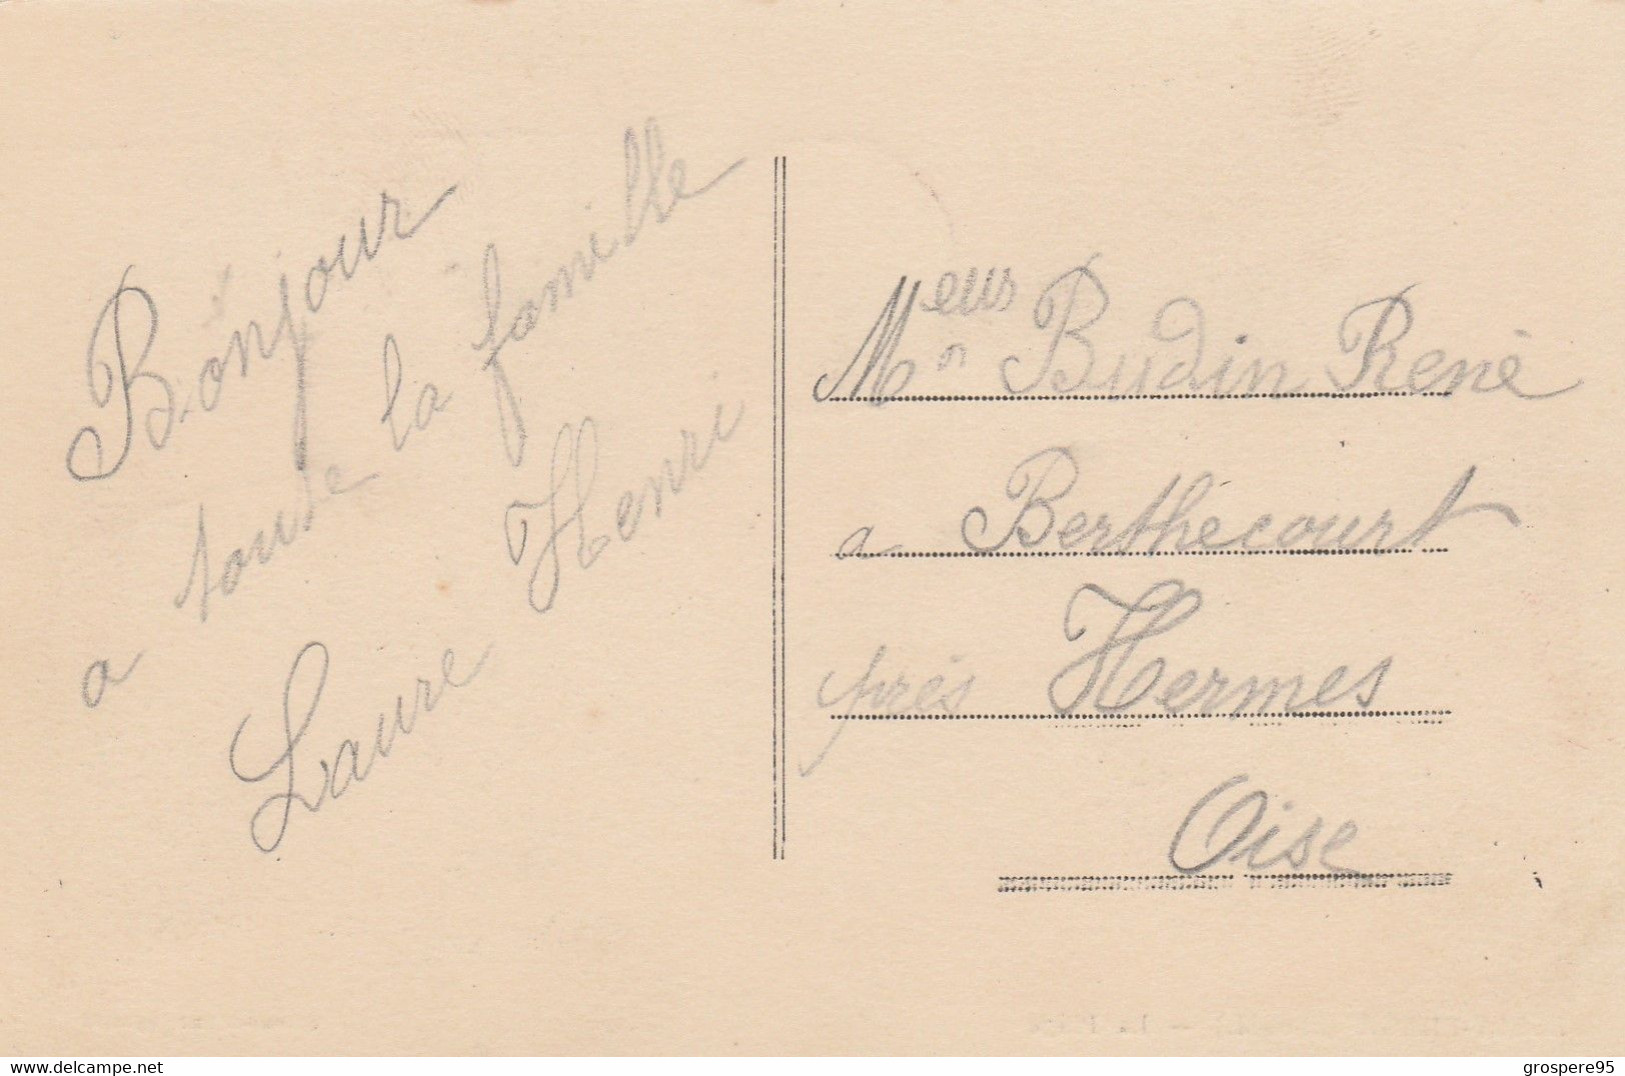 Bonjour
a toute la famille
Laure Henri
Meur Budin René
a Berthecourt
près Hermes
Oise
delcampe.net
grospere95